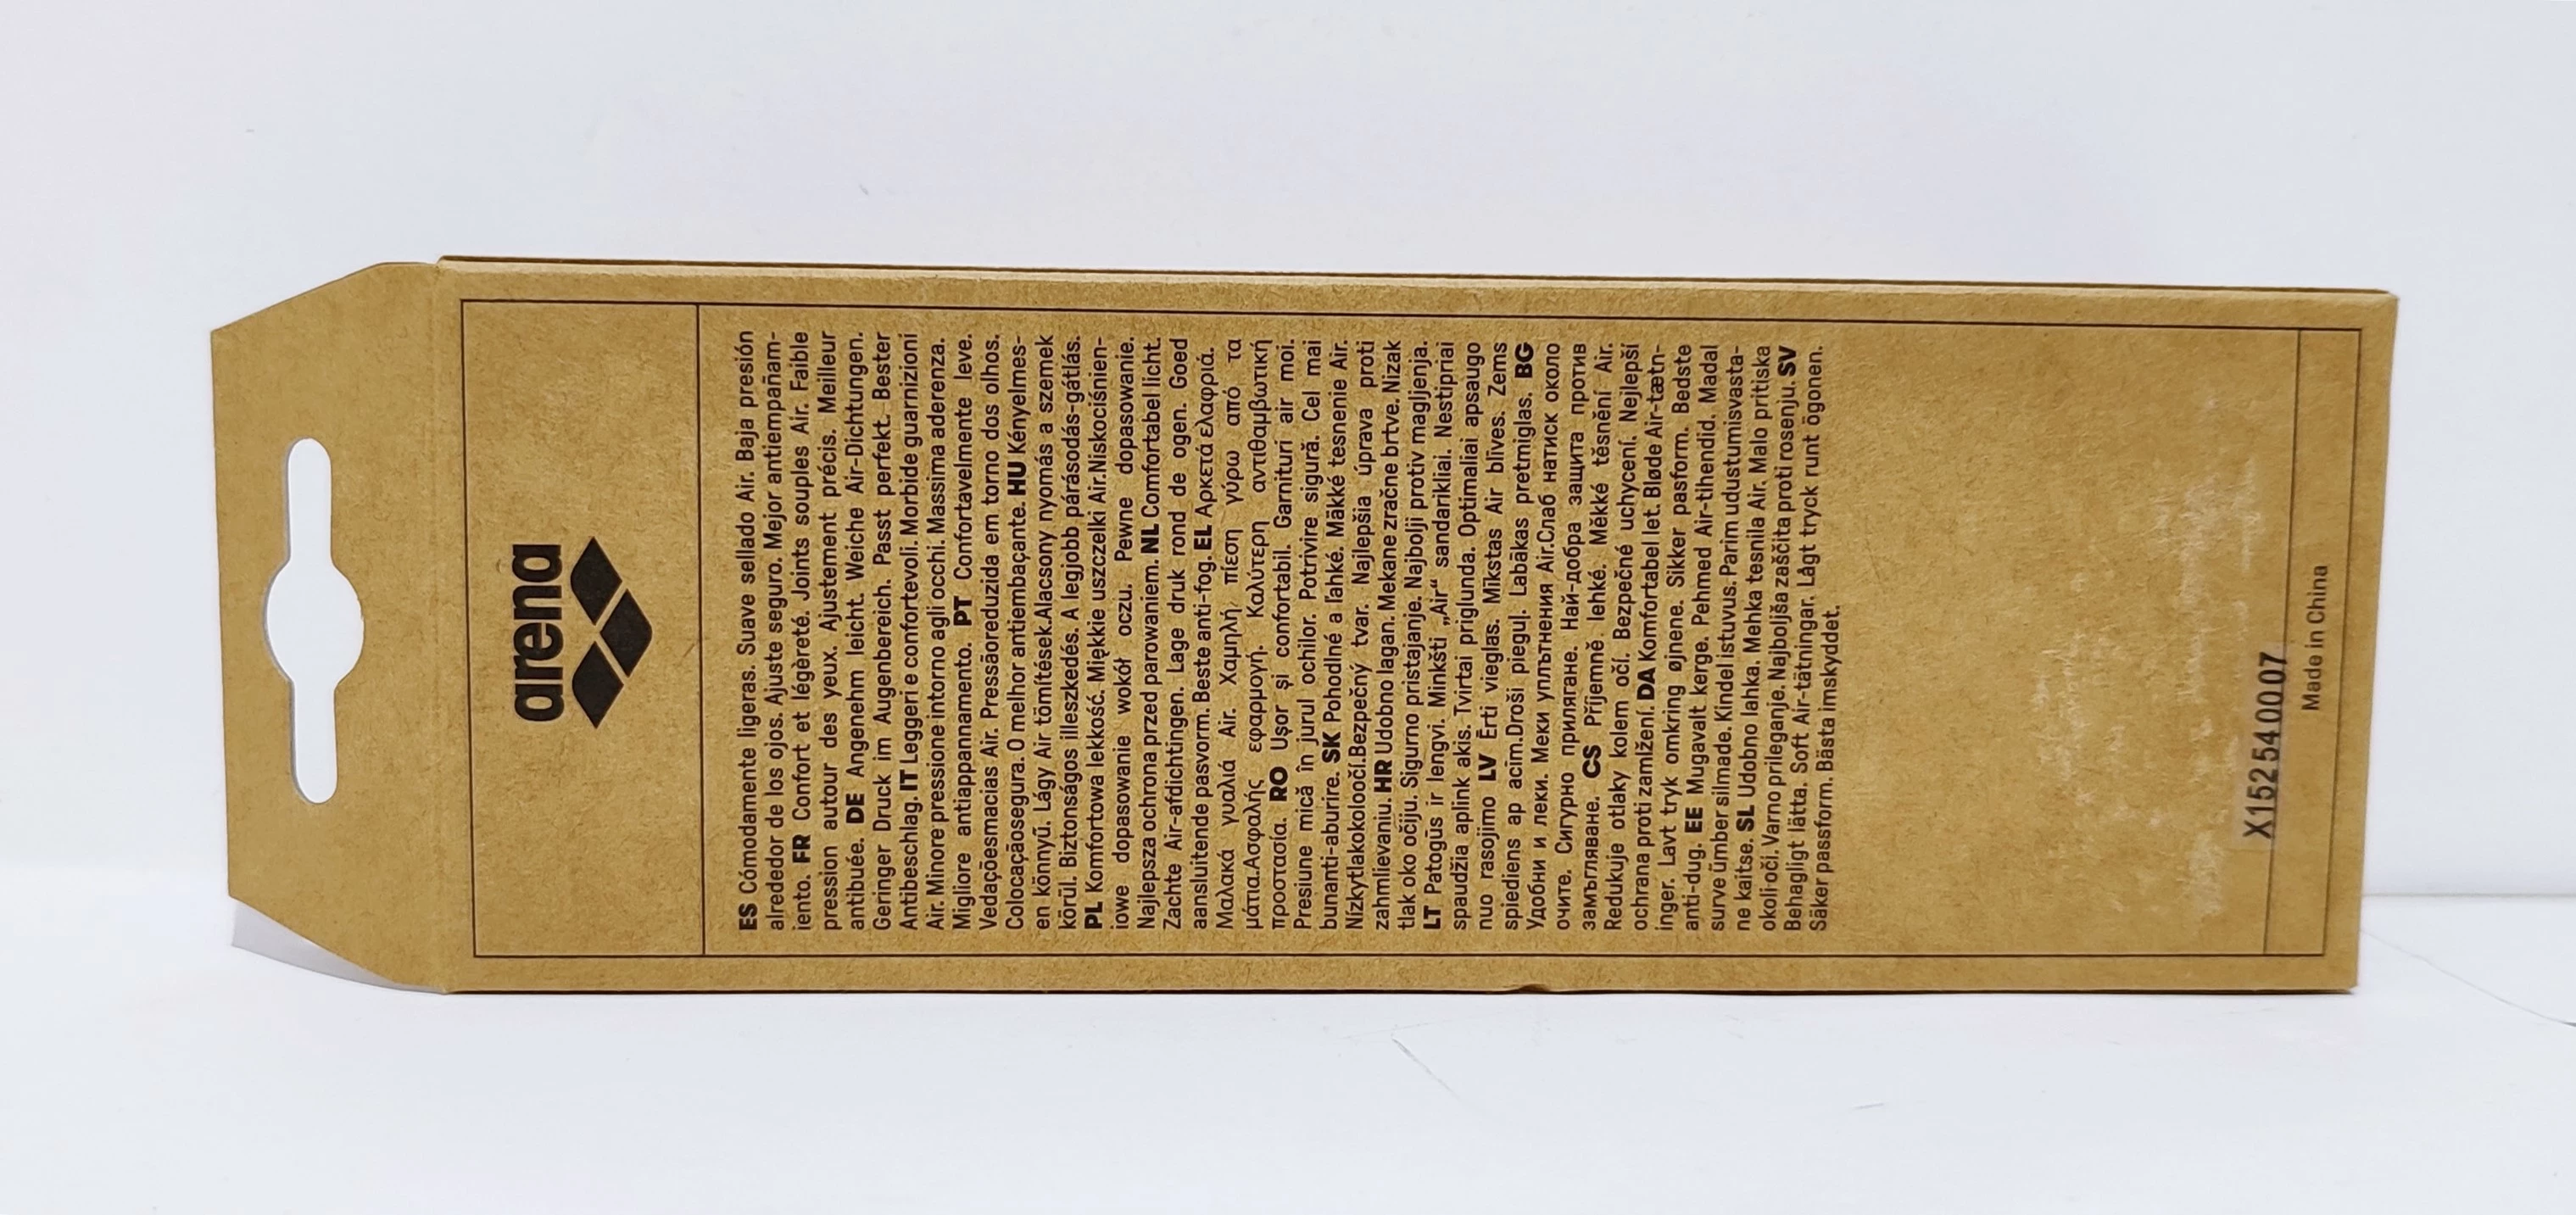 arena
ES Cómodamente ligeras. Suave sellado Air. Baja presión
alrededor de los ojos. Ajuste seguro. Mejor antiempañam-
iento. FR Confort et légèreté. Joints souples Air. Faible
pression autour des yeux. Ajustement précis. Meilleur
antibuée. DE Angenehm leicht. Weiche Air-Dichtungen.
Geringer Druck im Augenbereich. Passt perfekt. Bester
Antibeschlag. IT Leggeri e confortevoli. Morbide guarnizioni
Air. Minore pressione intorno agli occhi. Massima aderenza.
Migliore antiappannamento. PT Confortavelmente leve.
Vedaçõesmacias Air. Pressãoreduzida em torno dos olhos.
Colocaçãosegura. O melhor antiembaçante. HU Kényelmes-
en könnyű. Lágy Air tömítések.Alacsony nyomás a szemek
körül. Biztonságos illeszkedés. A legjobb párásodás-gátlás.
PL Komfortowa lekkość. Miękkie uszczelki Air.Niskociśnien-
iowe dopasowanie wokół oczu. Pewne dopasowanie.
Najlepsza ochrona przed parowaniem. NL Comfortabel licht.
Zachte Air-afdichtingen. Lage druk rond de ogen. Goed
aansluitende pasvorm. Beste anti-fog. EL Αρκετά ελαφριά.
Μαλακά γυαλιά Air. Χαμηλή πίεση γύρω από τα
μάτια.Ασφαλής εφαρμογή. Καλύτερη αντιθαμβωτική
προστασία. RO Ușor și confortabil. Garnituri air moi.
Presiune mică în jurul ochilor. Potrivire sigură. Cel mai
bunanti-aburire. SK Pohodlné a ľahké. Mäkké tesnenie Air.
Nízkytlakokoloočí.Bezpečný tvar. Najlepšia úprava proti
zahmlievaniu. HR Udobno lagan. Mekane zračne brtve. Nizak
tlak oko očiju. Sigurno pristajanje. Najbolji protiv magljenja.
LT Patogūs ir lengvi. Minkšti „Air“ sandarikliai. Nestipriai
spaudžia aplink akis. Tvirtai priglunda. Optimaliai apsaugo
nuo rasojimo LV Ērti vieglas. Mīkstas Air blīves. Zems
spiediens ap acīm.Droši pieguļ. Labākas pretmiglas. BG
Удобни и леки. Меки уплътнения Air.Слаб натиск около
очите. Сигурно прилягане. Най-добра защита против
замъгляване. CS Příjemně lehké. Měkké těsnění Air.
Redukuje otlaky kolem očí. Bezpečné uchycení. Nejlepší
ochrana proti zamlžení. DA Komfortabel let. Bløde Air-tætn-
inger. Lavt tryk omkring øjnene. Sikker pasform. Bedste
anti-dug. EE Mugavalt kerge. Pehmed Air-tihendid. Madal
surve ümber silmade. Kindel istuvus. Parim udustumisvasta-
ne kaitse. SL Udobno lahka. Mehka tesnila Air. Malo pritiska
okoli oči. Varno prileganje. Najboljša zaščita proti rosenju. SV
Behagligt lätta. Soft Air-tätningar. Lågt tryck runt ögonen.
Säker passform. Bästa imskyddet.
X152540007
Made in China